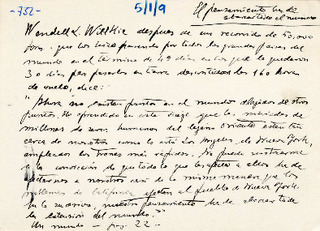 -752-
5/1/9
El pensamiento ha de
abarcar todo el mundo
Wendell L. Willkie despues de un recorrido de 50.000
kms. que los hizo pasando por todos los grandes países del
mundo en el término de 49 días en los que le quedaron
30 días por pasarlos en tierra descontadas las 160 horas
de vuelo, dice:
"Ahora no existen puntos en el mundo alejados de otros
puntos. He aprendido en este viaje que las miriadas de
millones de seres humanos del lejano Oriente están tan
cerca de nosotros como lo está Los Angeles, de Nueva York,
empleados los trenes más rápidos. No puedo sustraerme
a la condición de que todo lo que les afecte a ellos ha de
afectarnos a nosotros casi de la misma manera que los
millones de California afectan al pueblo de Nueva York.
En lo sucesivo, nuestro pensamiento ha de abarcar toda
la extensión del mundo."
Un mundo - pag. 22 -